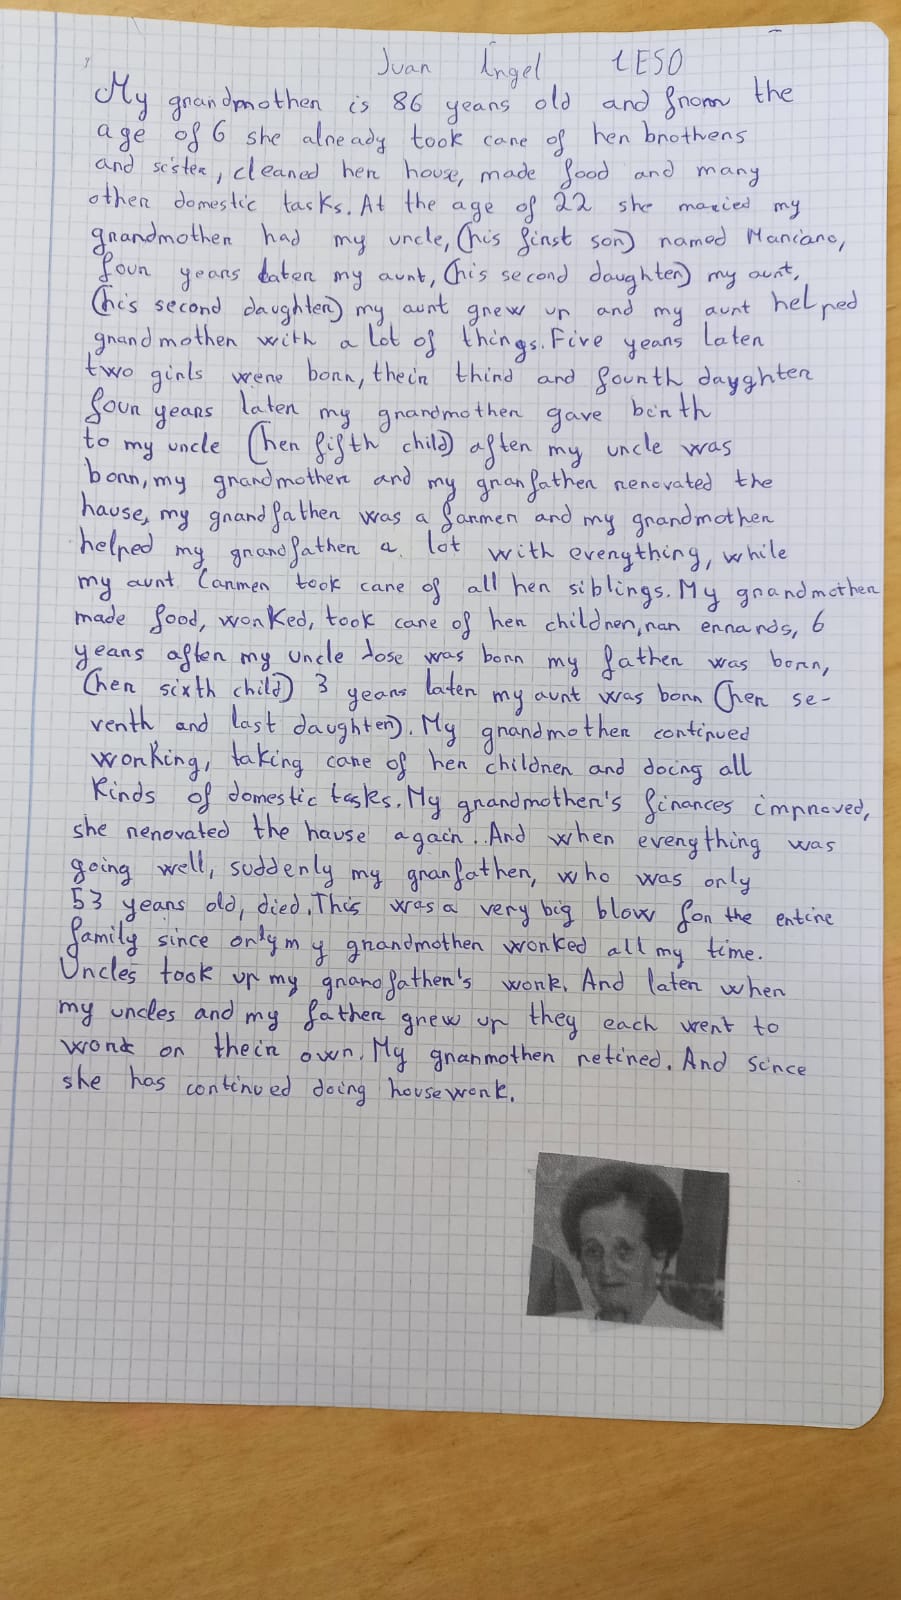 Juan Ángel 1ESO
My grandmother is 86 years old and from the
age of 6 she already took care of her brothers
and sister, cleaned her house, made food and many
other domestic tasks. At the age of 22 she maried my
grandmother had my uncle, (his first son) named Marciano,
four years later my aunt, (his second daughter) my aunt,
(his second daughter) my aunt grew up and my aunt helped
grandmother with a lot of things. Five years later
two girls were born, their third and fourth dayghter
four years later my grandmother gave birth
to my uncle (her fifth child) after my uncle was
born, my grandmother and my granfather renovated the
hause, my grandfather was a farmer and my grandmother
helped my grandfather a lot with everything, while
my aunt Carmen took care of all her siblings. My grandmother
made food, worked, took care of her children, ran errands, 6
years after my uncle Jose was born my father was born,
(her sixth child) 3 years later my aunt was born (her se-
venth and last daughter). My grandmother continued
working, taking care of her children and doing all
kinds of domestic tasks. My grandmother's finances improved,
she renovated the hause again.. And when everything was
going well, suddenly my granfather, who was only
53 years old, died. This was a very big blow for the entire
family since only my grandmother worked all my time.
Uncles took up my grandfather's work. And later when
my uncles and my father grew up they each went to
work on their own. My granmother retired. And since
she has continued doing housework.